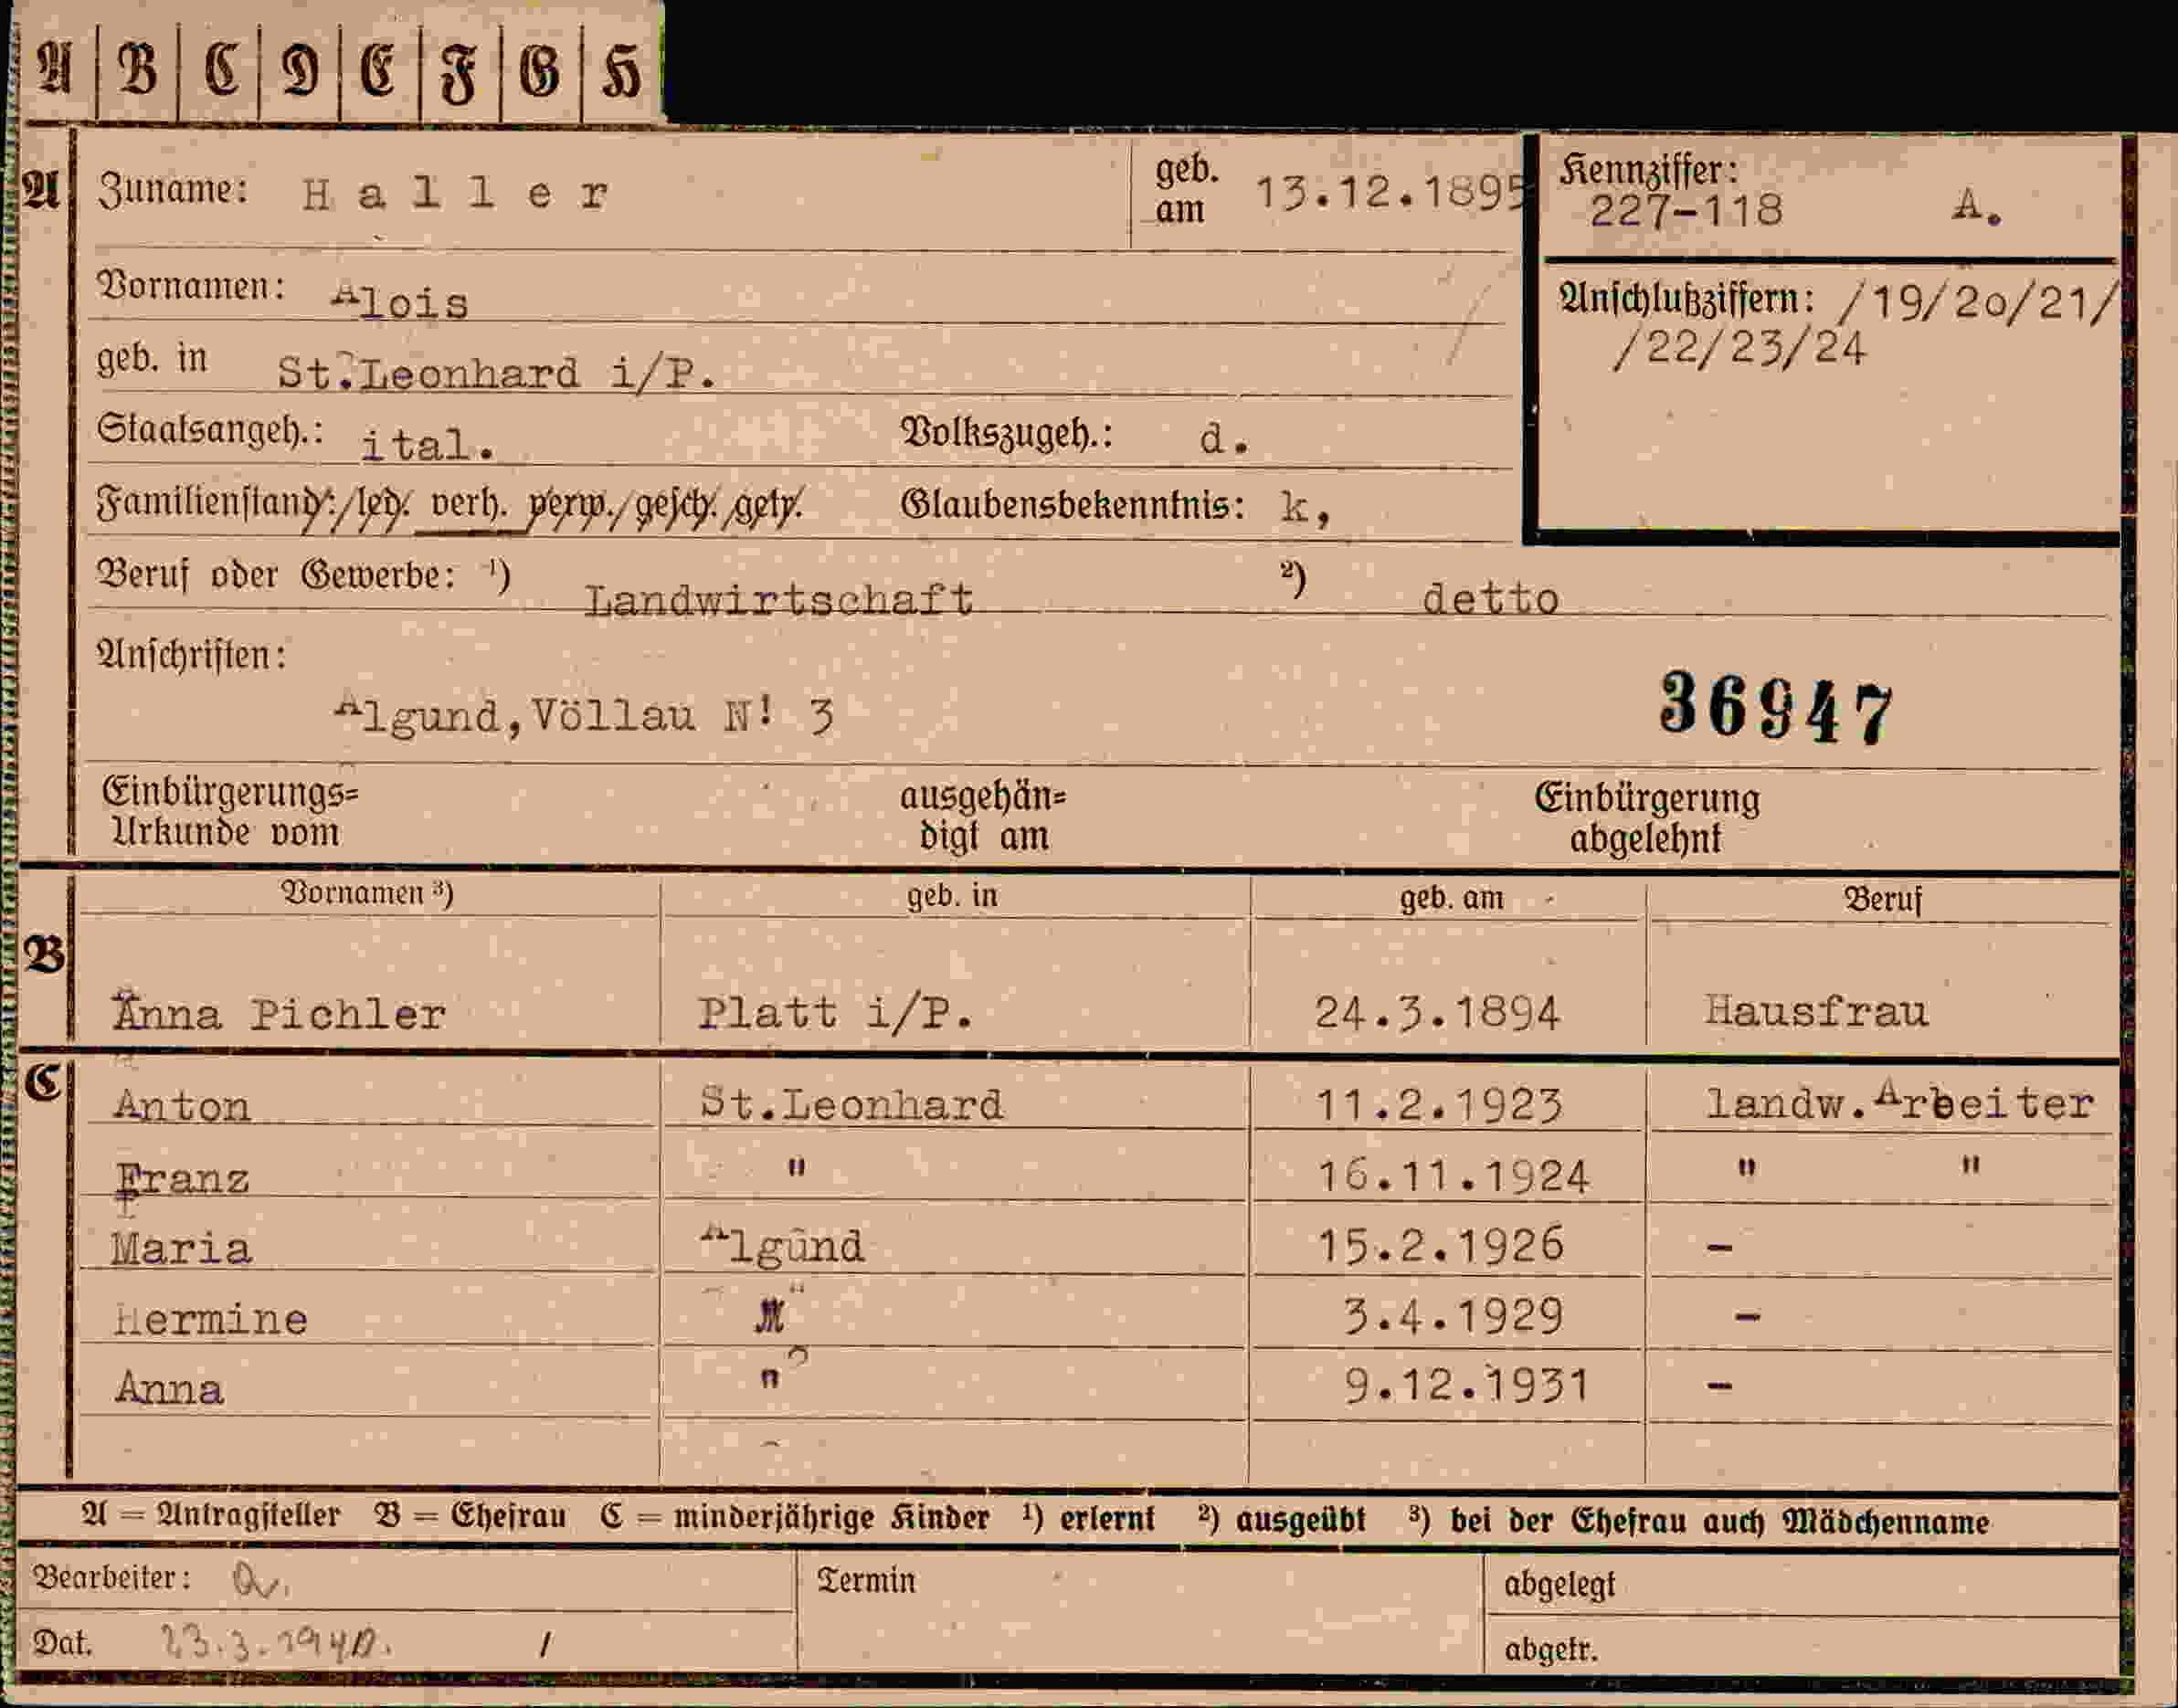 A B C D E F G H
A Zuname: Haller geb. am 13.12.1895
Kennziffer: 227-118 A.
Vornamen: Alois
Anschlußziffern: /19/20/21/
/22/23/24
geb. in St.Leonhard i/P.
Staatsangeh.: ital. Volkszugeh.: d.
Familienstand: led. verh. verw. gesch. getr. Glaubensbekenntnis: k,
Beruf oder Gewerbe: 1) Landwirtschaft 2) detto
Anschriften:
Algund,Völlau N! 3
36947
Einbürgerungs= Urkunde vom ausgehän= digt am Einbürgerung abgelehnt
Vornamen 3) geb. in geb. am Beruf
B
Anna Pichler Platt i/P. 24.3.1894 Hausfrau
C
Anton St.Leonhard 11.2.1923 landw.Arbeiter
Franz " 16.11.1924 " "
Maria Algund 15.2.1926 -
Hermine " 3.4.1929 -
Anna " 9.12.1931 -
A = Antragsteller B = Ehefrau C = minderjährige Kinder 1) erlernt 2) ausgeübt 3) bei der Ehefrau auch Mädchenname
Bearbeiter: Termin abgelegt
Dat. 23.3.1940. / abgetr.